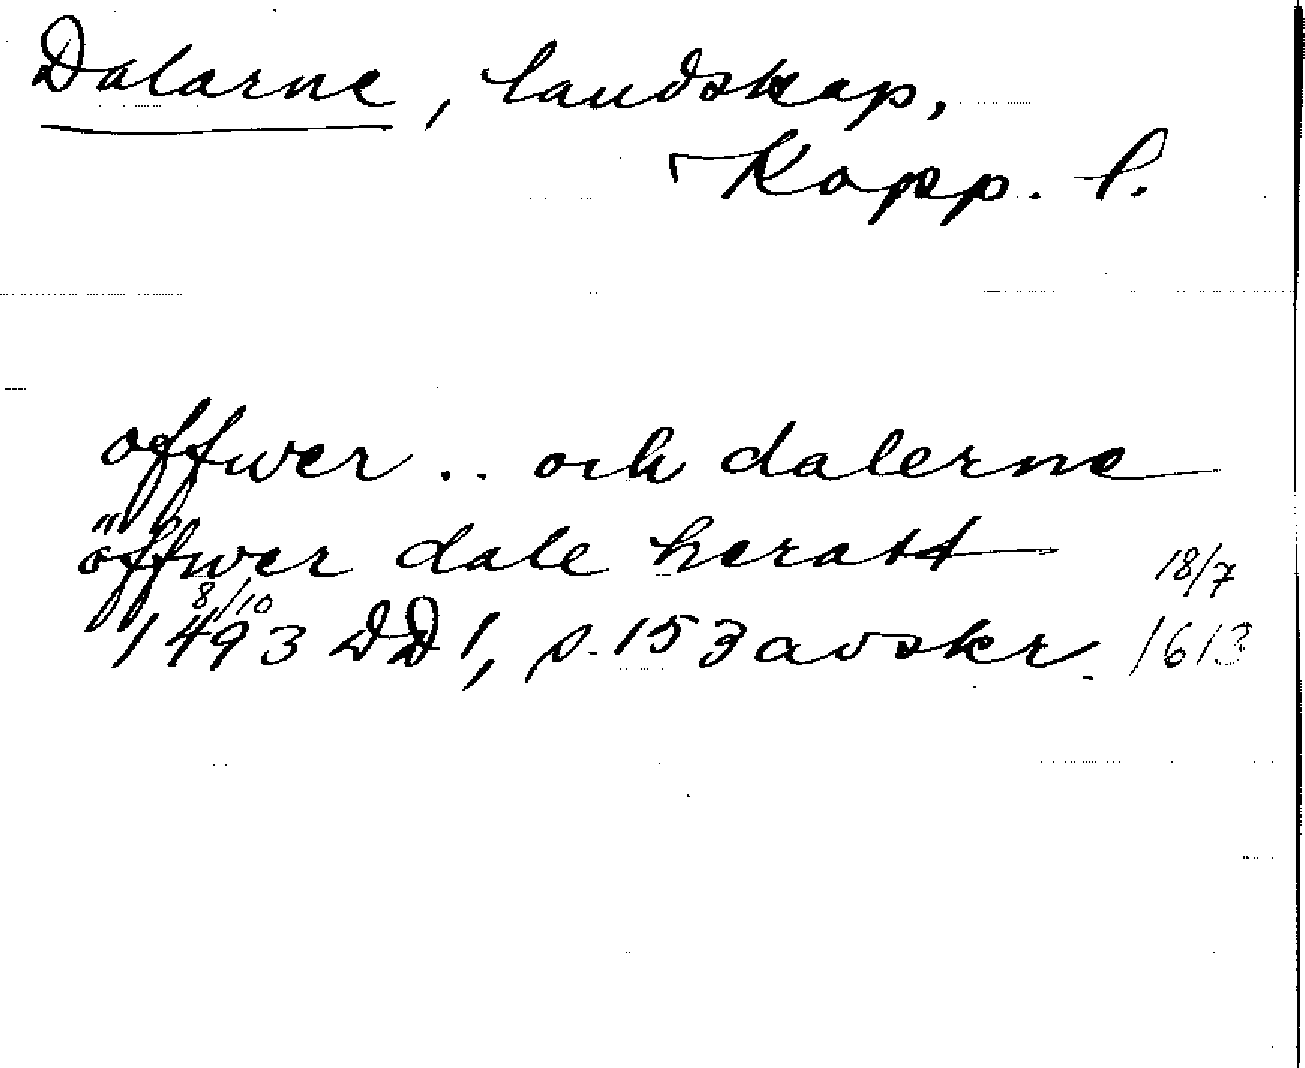 Dalarne, landskap,
Kopp. l.
offwer .. och dalerne
öffwer dale heratt
8/10 18/7
1493 DD 1, s. 153 avskr. 1613